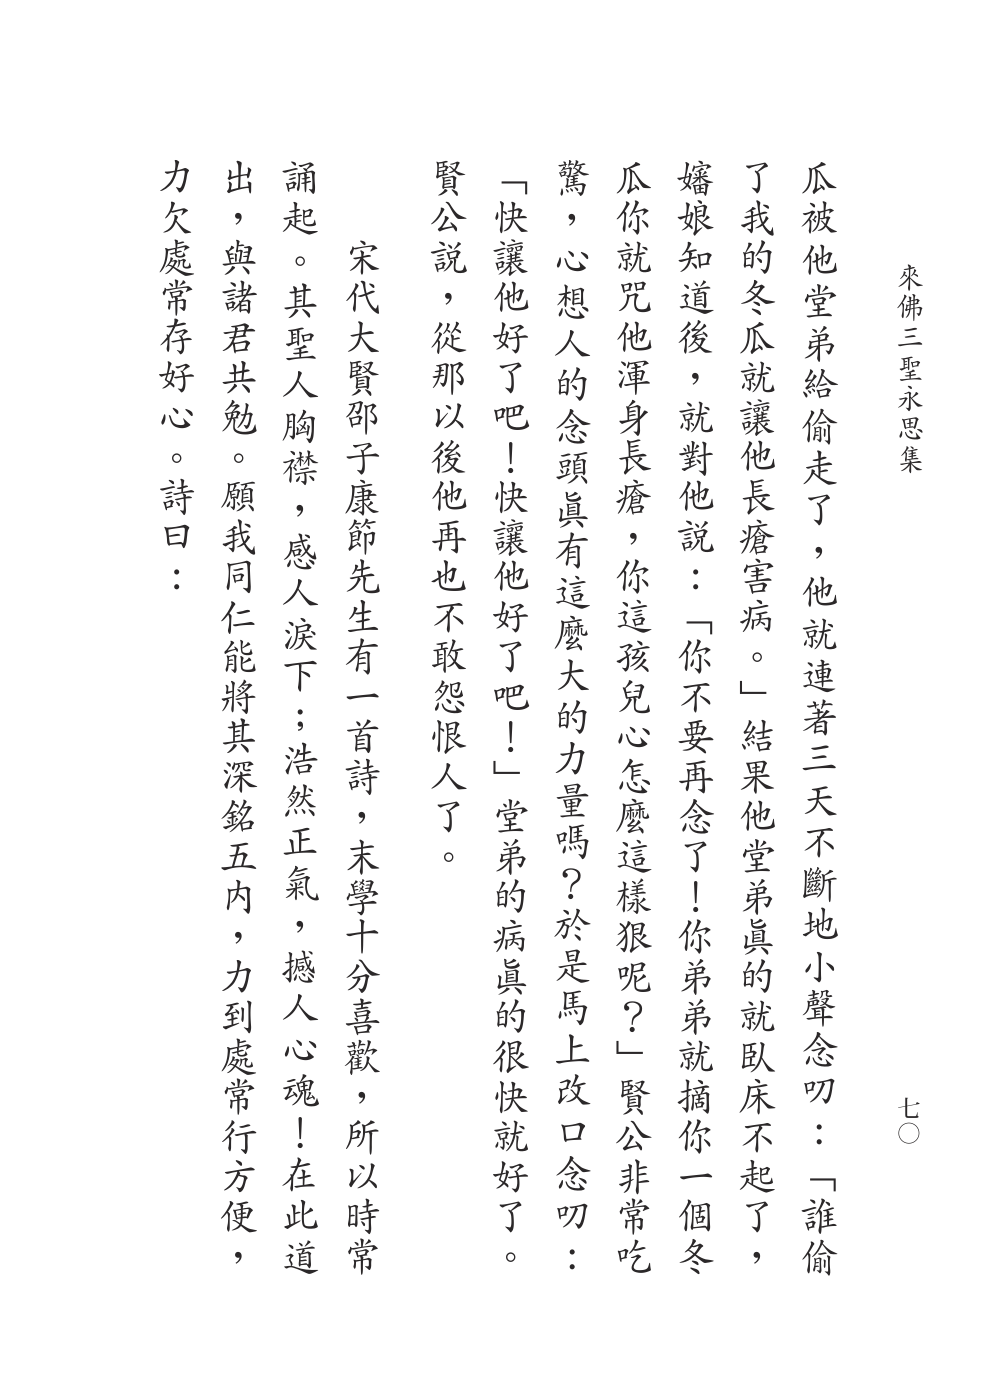 來佛三聖永思集
七〇
瓜被他堂弟給偷走了，他就連著三天不斷地小聲念叨：「誰偷
了我的冬瓜就讓他長瘡害病。」結果他堂弟眞的就臥床不起了，
嬸娘知道後，就對他說：「你不要再念了！你弟弟就摘你一個冬
瓜你就咒他渾身長瘡，你這孩兒心怎麼這樣狠呢？」賢公非常吃
驚，心想人的念頭眞有這麼大的力量嗎？於是馬上改口念叨：
「快讓他好了吧！快讓他好了吧！」堂弟的病眞的很快就好了。
賢公說，從那以後他再也不敢怨恨人了。
宋代大賢邵子康節先生有一首詩，末學十分喜歡，所以時常
誦起。其聖人胸襟，感人淚下；浩然正氣，撼人心魂！在此道
出，與諸君共勉。願我同仁能將其深銘五內，力到處常行方便，
力欠處常存好心。詩曰：